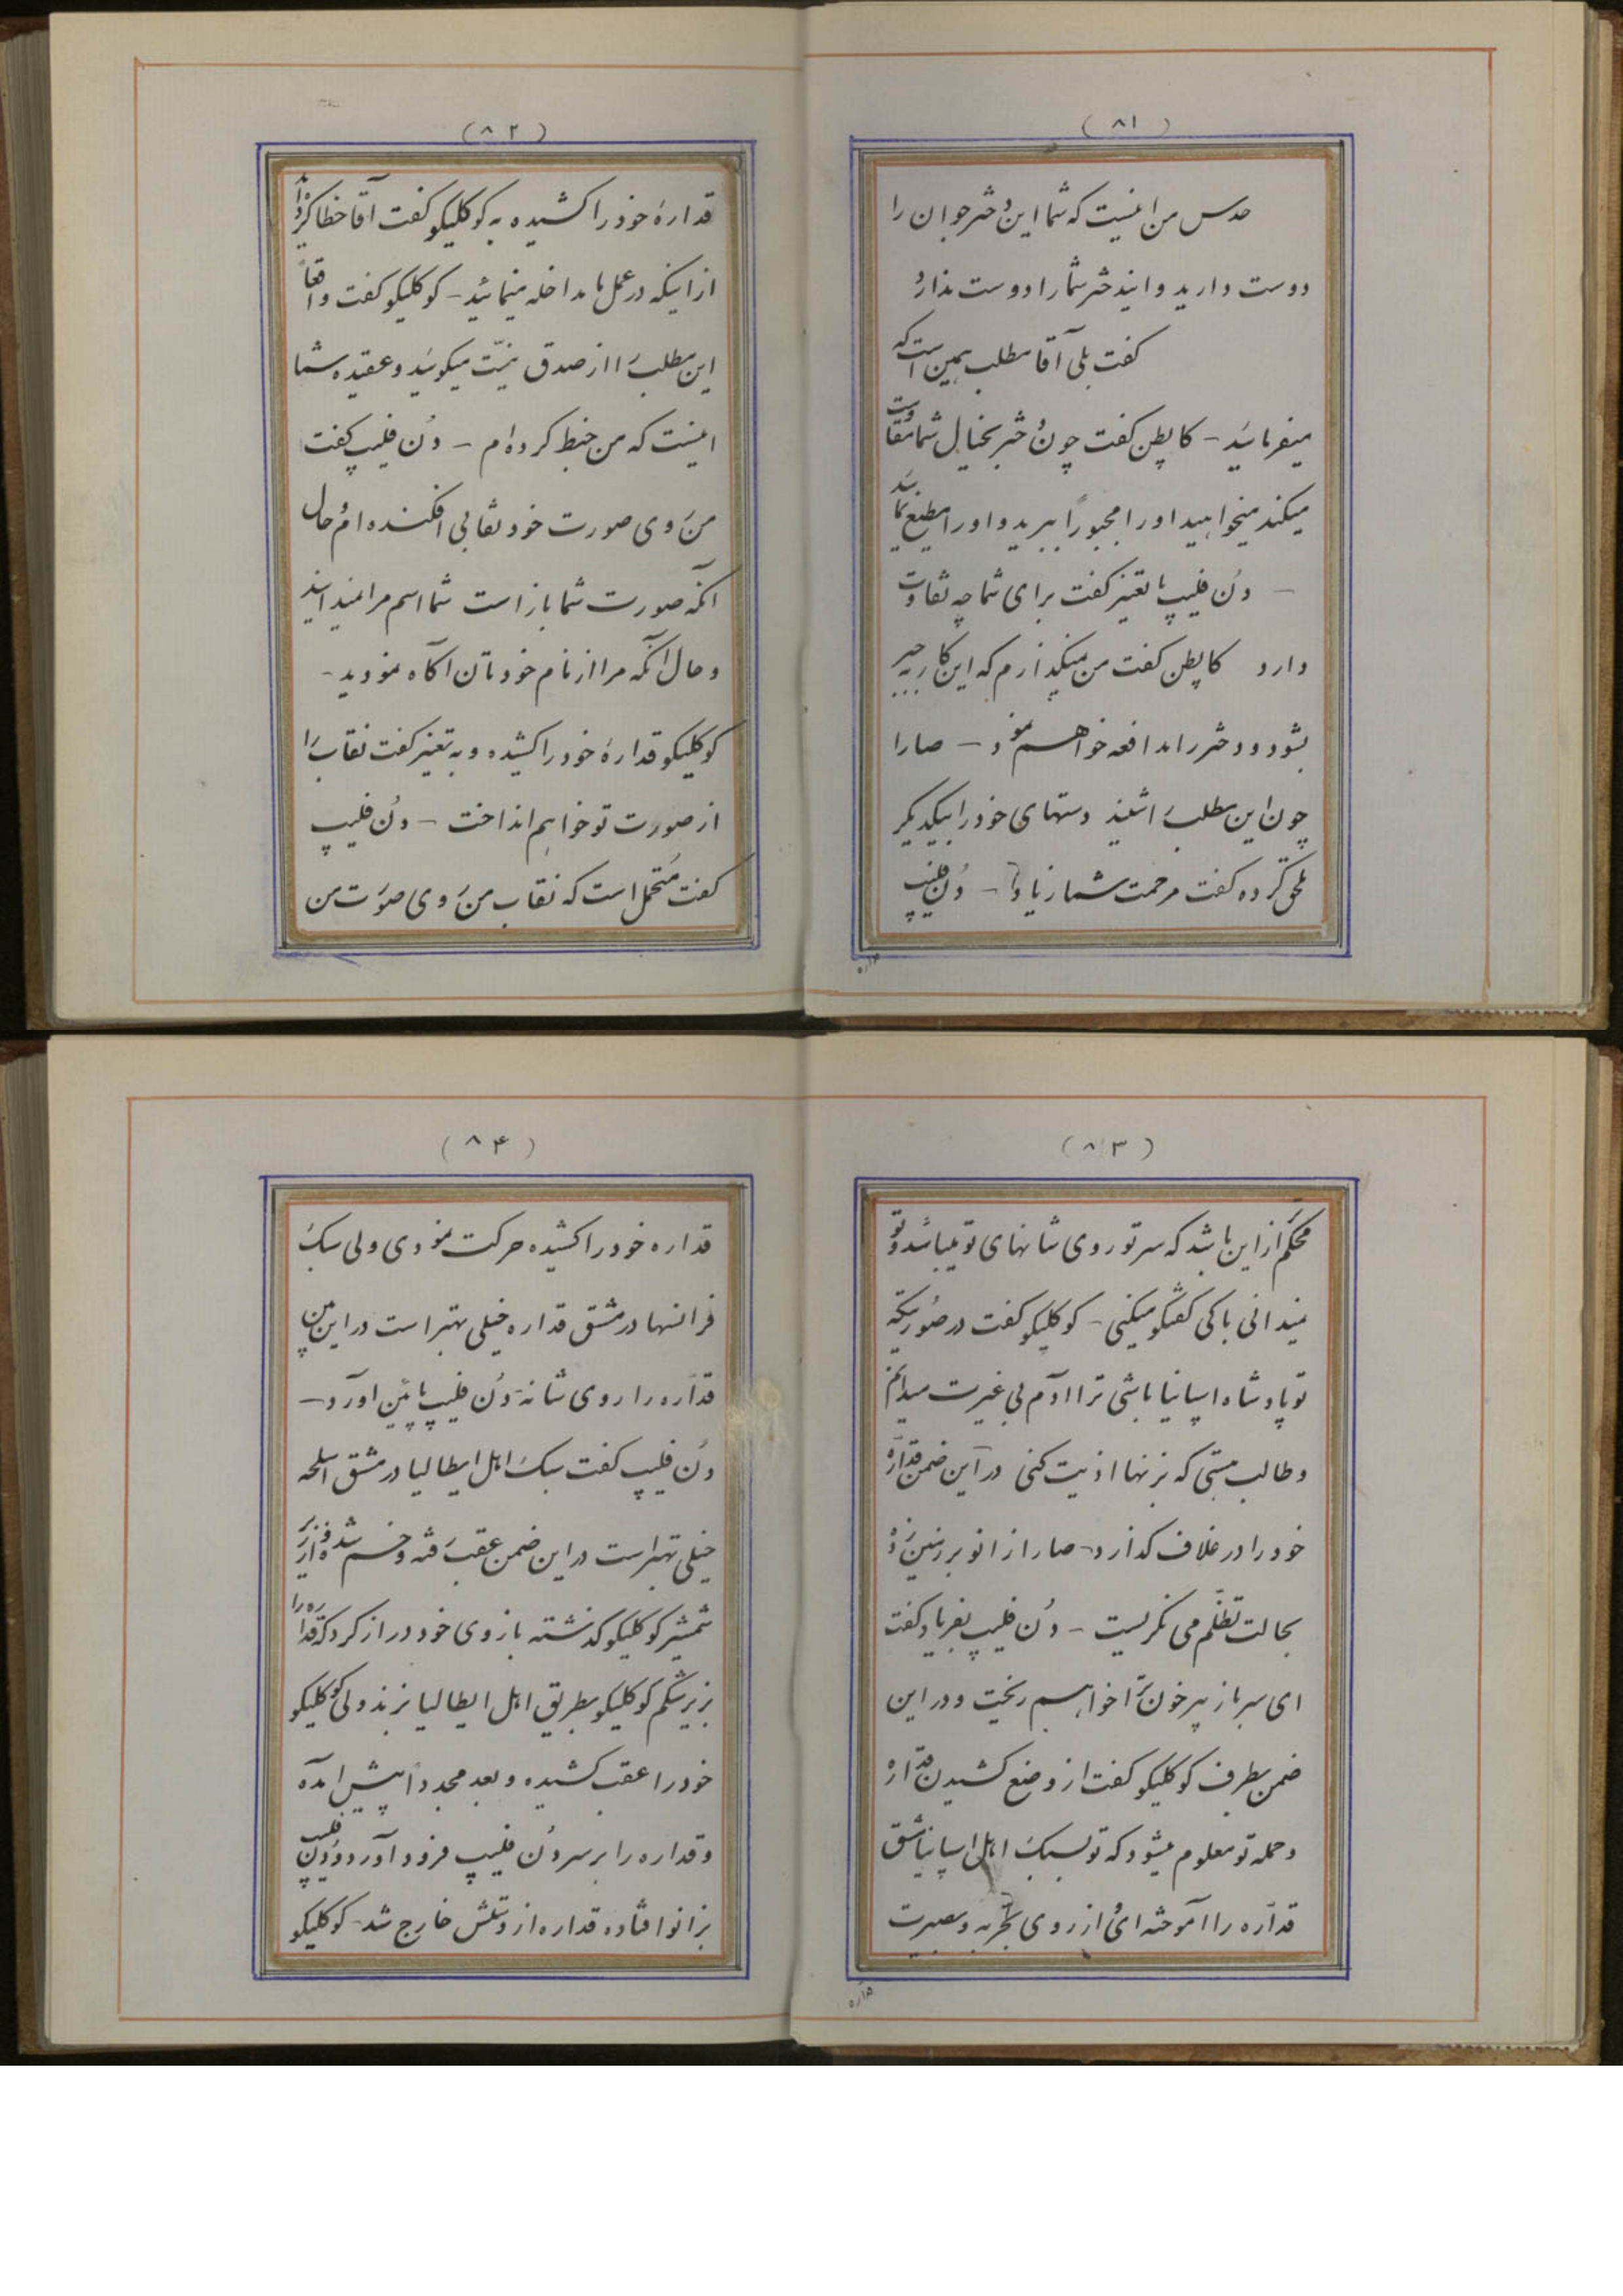 (۸۱)
حدس من اینست که شما این دختر جوان را
دوست دارید و ایندختر شما را دوست ندارد
گفت بلی آقا مطلب همین است که
میفرمائید - کاپطن گفت چون دختر بخیال شما مقاومت
میکند میخواهید او را مجبوراً ببرید و او را مطیع نمائید
- دُن فلیپ با تغیر گفت برای شما چه تفاوت
دارد کاپطن گفت من نمیگذارم که این کار به جبر
بشود و دختر را مدافعه خواهم نمود - صارا
چون این مطلب را شنید دستهای خود را بیکدیگر
ملحق کرده گفت مرحمت شما زیاد - دُن فلیپ
(۸۲)
قدارهٔ خود را کشیده به کوکلیکو گفت آقا خطا کردید
از اینکه در عمل ما مداخله مینمائید - کوکلیکو گفت واقعاً
این مطلب را از صدق نیّت میگوئید و عقیده شما
اینست که من خبط کرده‌ام - دُن فلیپ گفت
من روی صورت خود نقابی افکنده‌ام و حال
آنکه صورت شما باز است شما اسم مرا نمیدانید
و حال آنکه مرا از نام خودتان آگاه نمودید -
کوکلیکو قدارهٔ خود را کشیده و به تغیر گفت نقاب را
از صورت تو خواهم انداخت - دُن فلیپ
گفت مُتحمل است که نقاب من روی صورت من
(۸۳)
محکم‌تر از این باشد که سر تو روی شانهای تو میباشد و تو
نمیدانی با کی گفتگو میکنی - کوکلیکو گفت در صورتیکه
تو پادشاه اسپانیا باشی ترا آدم بی غیرت میدانم
و طالب هستی که بزنها اذیت کنی در این ضمن قداره
خود را در غلاف گذارد - صارا زانو بر زمین زده
بحالت تظلّم می نگریست - دُن فلیپ بفریاد گفت
ای سرباز پیر خون ترا خواهم ریخت و در این
ضمن بطرف کوکلیکو گفت از وضع کشیدن قداره
و حمله تو معلوم میشود که تو بسبک اهل اسپانیا مشق
قداره را آموخته‌ای از روی تجربه و بصیرت
(۸۴)
قداره خود را کشیده حرکت نمودی ولی سبک
فرانسها در مشق قداره خیلی بهتر است در این بین
قداره را روی شانه دُن فلیپ پائین آورد -
دُن فلیپ گفت سبک اهل ایطالیا در مشق اسلحه
خیلی بهتر است در این ضمن عقب رفته و خم شده و از زیر
شمشیر کوکلیکو گذشته بازوی خود دراز کرد که قداره را
بزیر شکم کوکلیکو بطریق اهل ایطالیا بزند ولی کوکلیکو
خود را عقب کشیده و بعد مجدداً پیش آمده
و قداره را بر سر دُن فلیپ فرود آورد و دُن فلیپ
بزانو افتاده قداره از دستش خارج شد - کوکلیکو